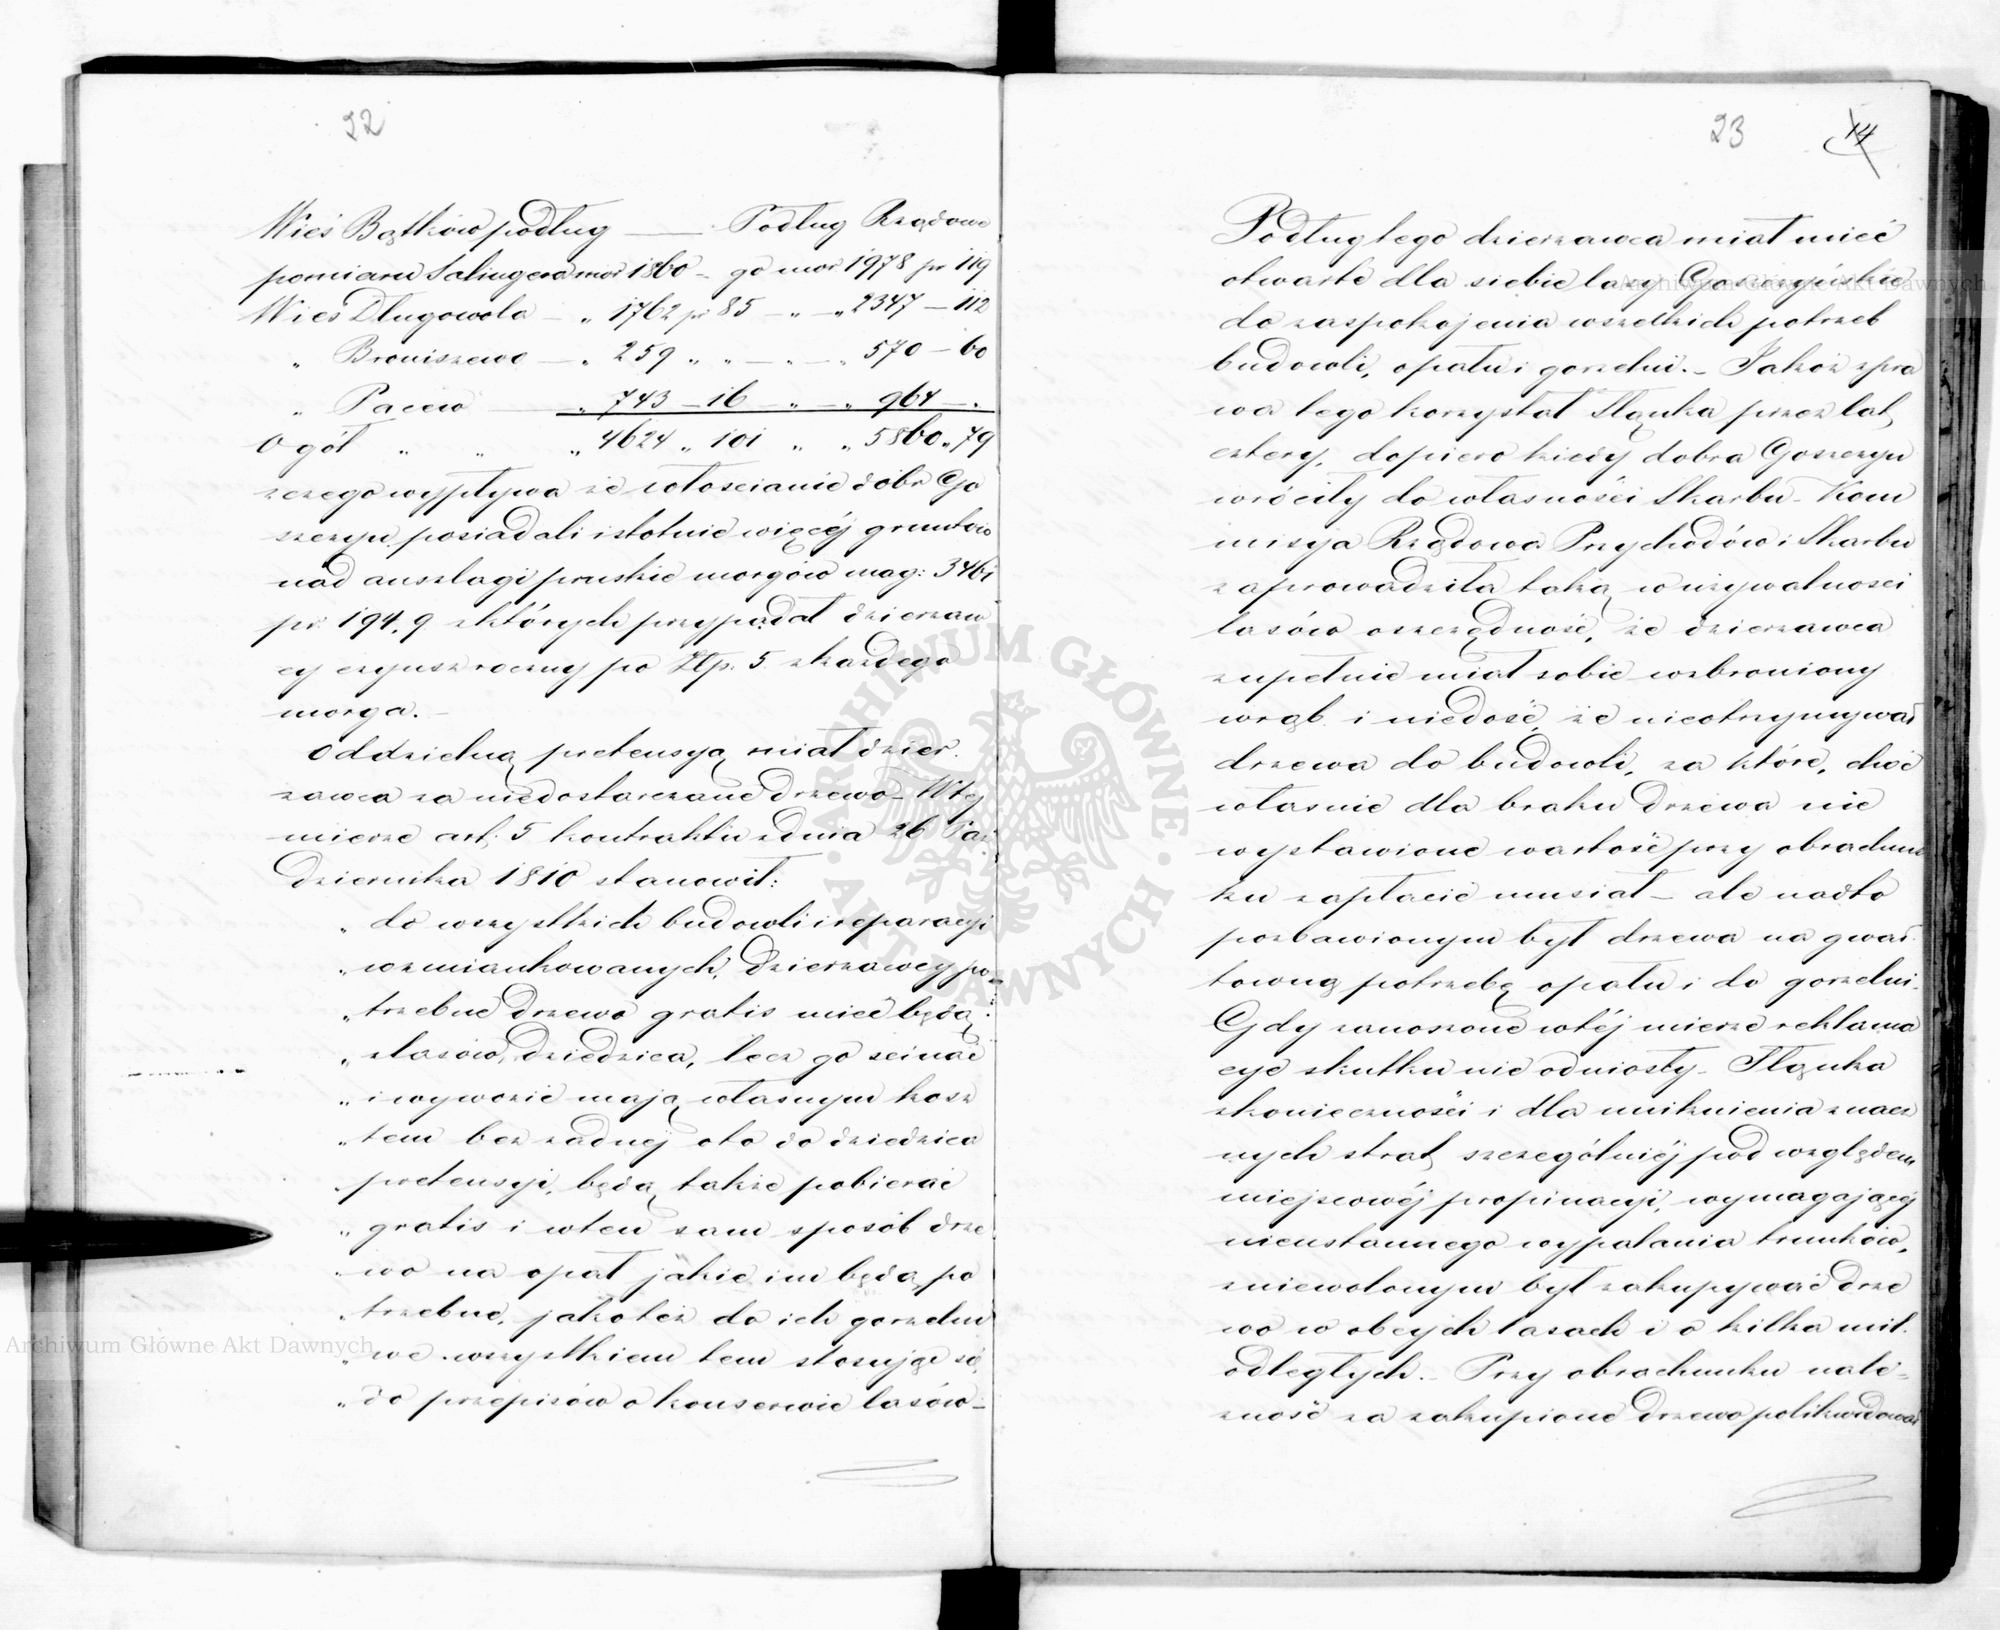 22
Wieś Bątków podług — Podług Rządowe
pomiaru Salingera mor 1860 – go mor 1978 pr 119
Wieś Długowola — „ 1762 pr 85 — „ — „ 2347 — 112
„ Broniszewo — „ 259 „ „ — „ — „ 570 — 60
„ Pacew „ 743 — 16 — „ — „ 964 — „
Ogół „ „ „ 4624 „ 101 „ „ 5860 „ 79
z czego wypływa że włościanie dóbr Go
szczyn posiadali istotnie więcéj gruntów
nad anszlagi pruskie morgów mag: 3461
pr. 194,9 z których przypadał dzierżaw
cy czynsz roczny po Złp. 5 z każdego
morga.–
Oddzielną pretensyą miał dzier.
żawca za niedostarczane drzewo – W téj
mierze art. 5 kontraktu z dnia 26 Paź
dziernika 1810 stanowił:
„ do wszystkich budowli i reparacyi
„ wzmiankowanych, Dzierżawcy po
„ trzebne drzewo gratis mieć będą
„ z lasów, dziedzica, lecz go ścinać
„ i wywozić mają własnym kosz
„ tem bez żadnéj oto do dziedzica
„ pretensyi, będą także pobierać
„ gratis i w ten sam sposób drze
„ wo na opał jakie im będą po
„ trzebne, jako też do ich gorzelni
„ we wszystkiem tem stosując się
„ do przepisów o konserwie lasów –
23 14
Podług tego dzierżawca miał mieć
otwarte dla siebie lasy Goszczyńskie
do zaspokojenia wszelkich potrzeb
budowli, opału i gorzelni. – Jakoż z pra
wa tego korzystał Słąnka przez lat
cztery, dopiero kiedy dobra Goszczyn
wróciły do własności Skarbu – Kom
misya Rządowa Przychodów i Skarbu
zaprowadziła taką w używalności
lasów oszczędność, że dzierżawca
zupełnie miał sobie wzbroniony
wrąb i niedość, że nieotrzymywał
drzewa do budowli, za które, choć
własnie dla braku drzewa nie
wystawione wartość przy obrachun
ku zapłacić musiał – ale nadto
pozbawionym był drzewa na gwał
towną potrzebę opału i do gorzelni.
Gdy zanoszone w téj mierze reklama
cye skutku nie odniosły – Słąnka
z konieczności i dla uniknienia znacz
nych strat, szczególniéj pod względem
miejscowéj propinacyi, wymagającéj
nieustannego wypalania trunków,
zniewolonym był zakupywać drze
wo w obcych lasach i o kilka mil
odległych. – Przy obrachunku nale-
zność za zakupione drzewo polikwidował
Archiwum Główne Akt Dawnych
Archiwum Główne Akt Dawnych
ARCHIWUM GŁÓWNE · AKT DAWNYCH ·